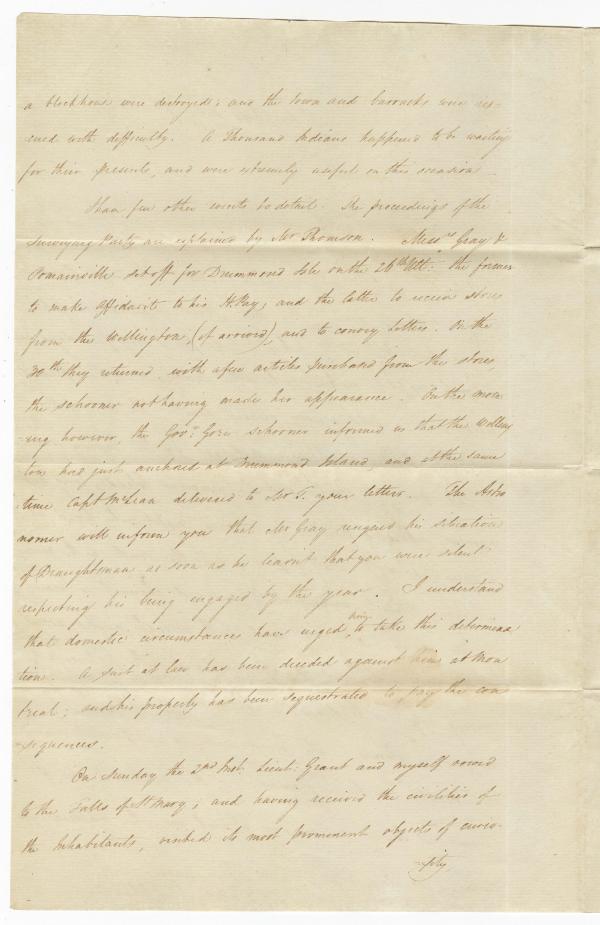 a blockhouse were destroyed; and the town and barracks were res-
cued with difficulty. A Thousand Indians happened to be waiting
for their presents, and were extremely useful on this occasion
I have few other events to detail. The proceedings of the
Surveying Party are explained by Mr Thomson. Messrs Gray &
Pomainville set off for Drummond Isle on the 26th Ult: the former
to make Affidavit to his H. Pay; and the latter to receive stores
from the Wellington, (if arrived), and to convey Letters. On the
30th they returned with a few articles purchased from the stores,
the schooner not having made her appearance. On the morn-
-ing however, the Govr Gore schooner informed us that the Welling
ton had just anchored at Drummond Island, and at the same
time Capt McLean delivered to Mr T. your letters. The Astro
nomer will inform you that Mr Gray resigned his situation
of Draughtsman as soon as he learnt that you were silent
respecting his being engaged by the year. I understand
that domestic circumstances have urged him to take this determina
tion. A suit at law has been decided against him at Mon
treal; and his property has been sequestrated to pay the con
-sequences.
On Sunday the 2nd Inst: Lieut: Grant and myself rowed
to the Falls of St Mary; and having received the civilities of
the Inhabitants, visited its most prominent objects of curio-
-sity